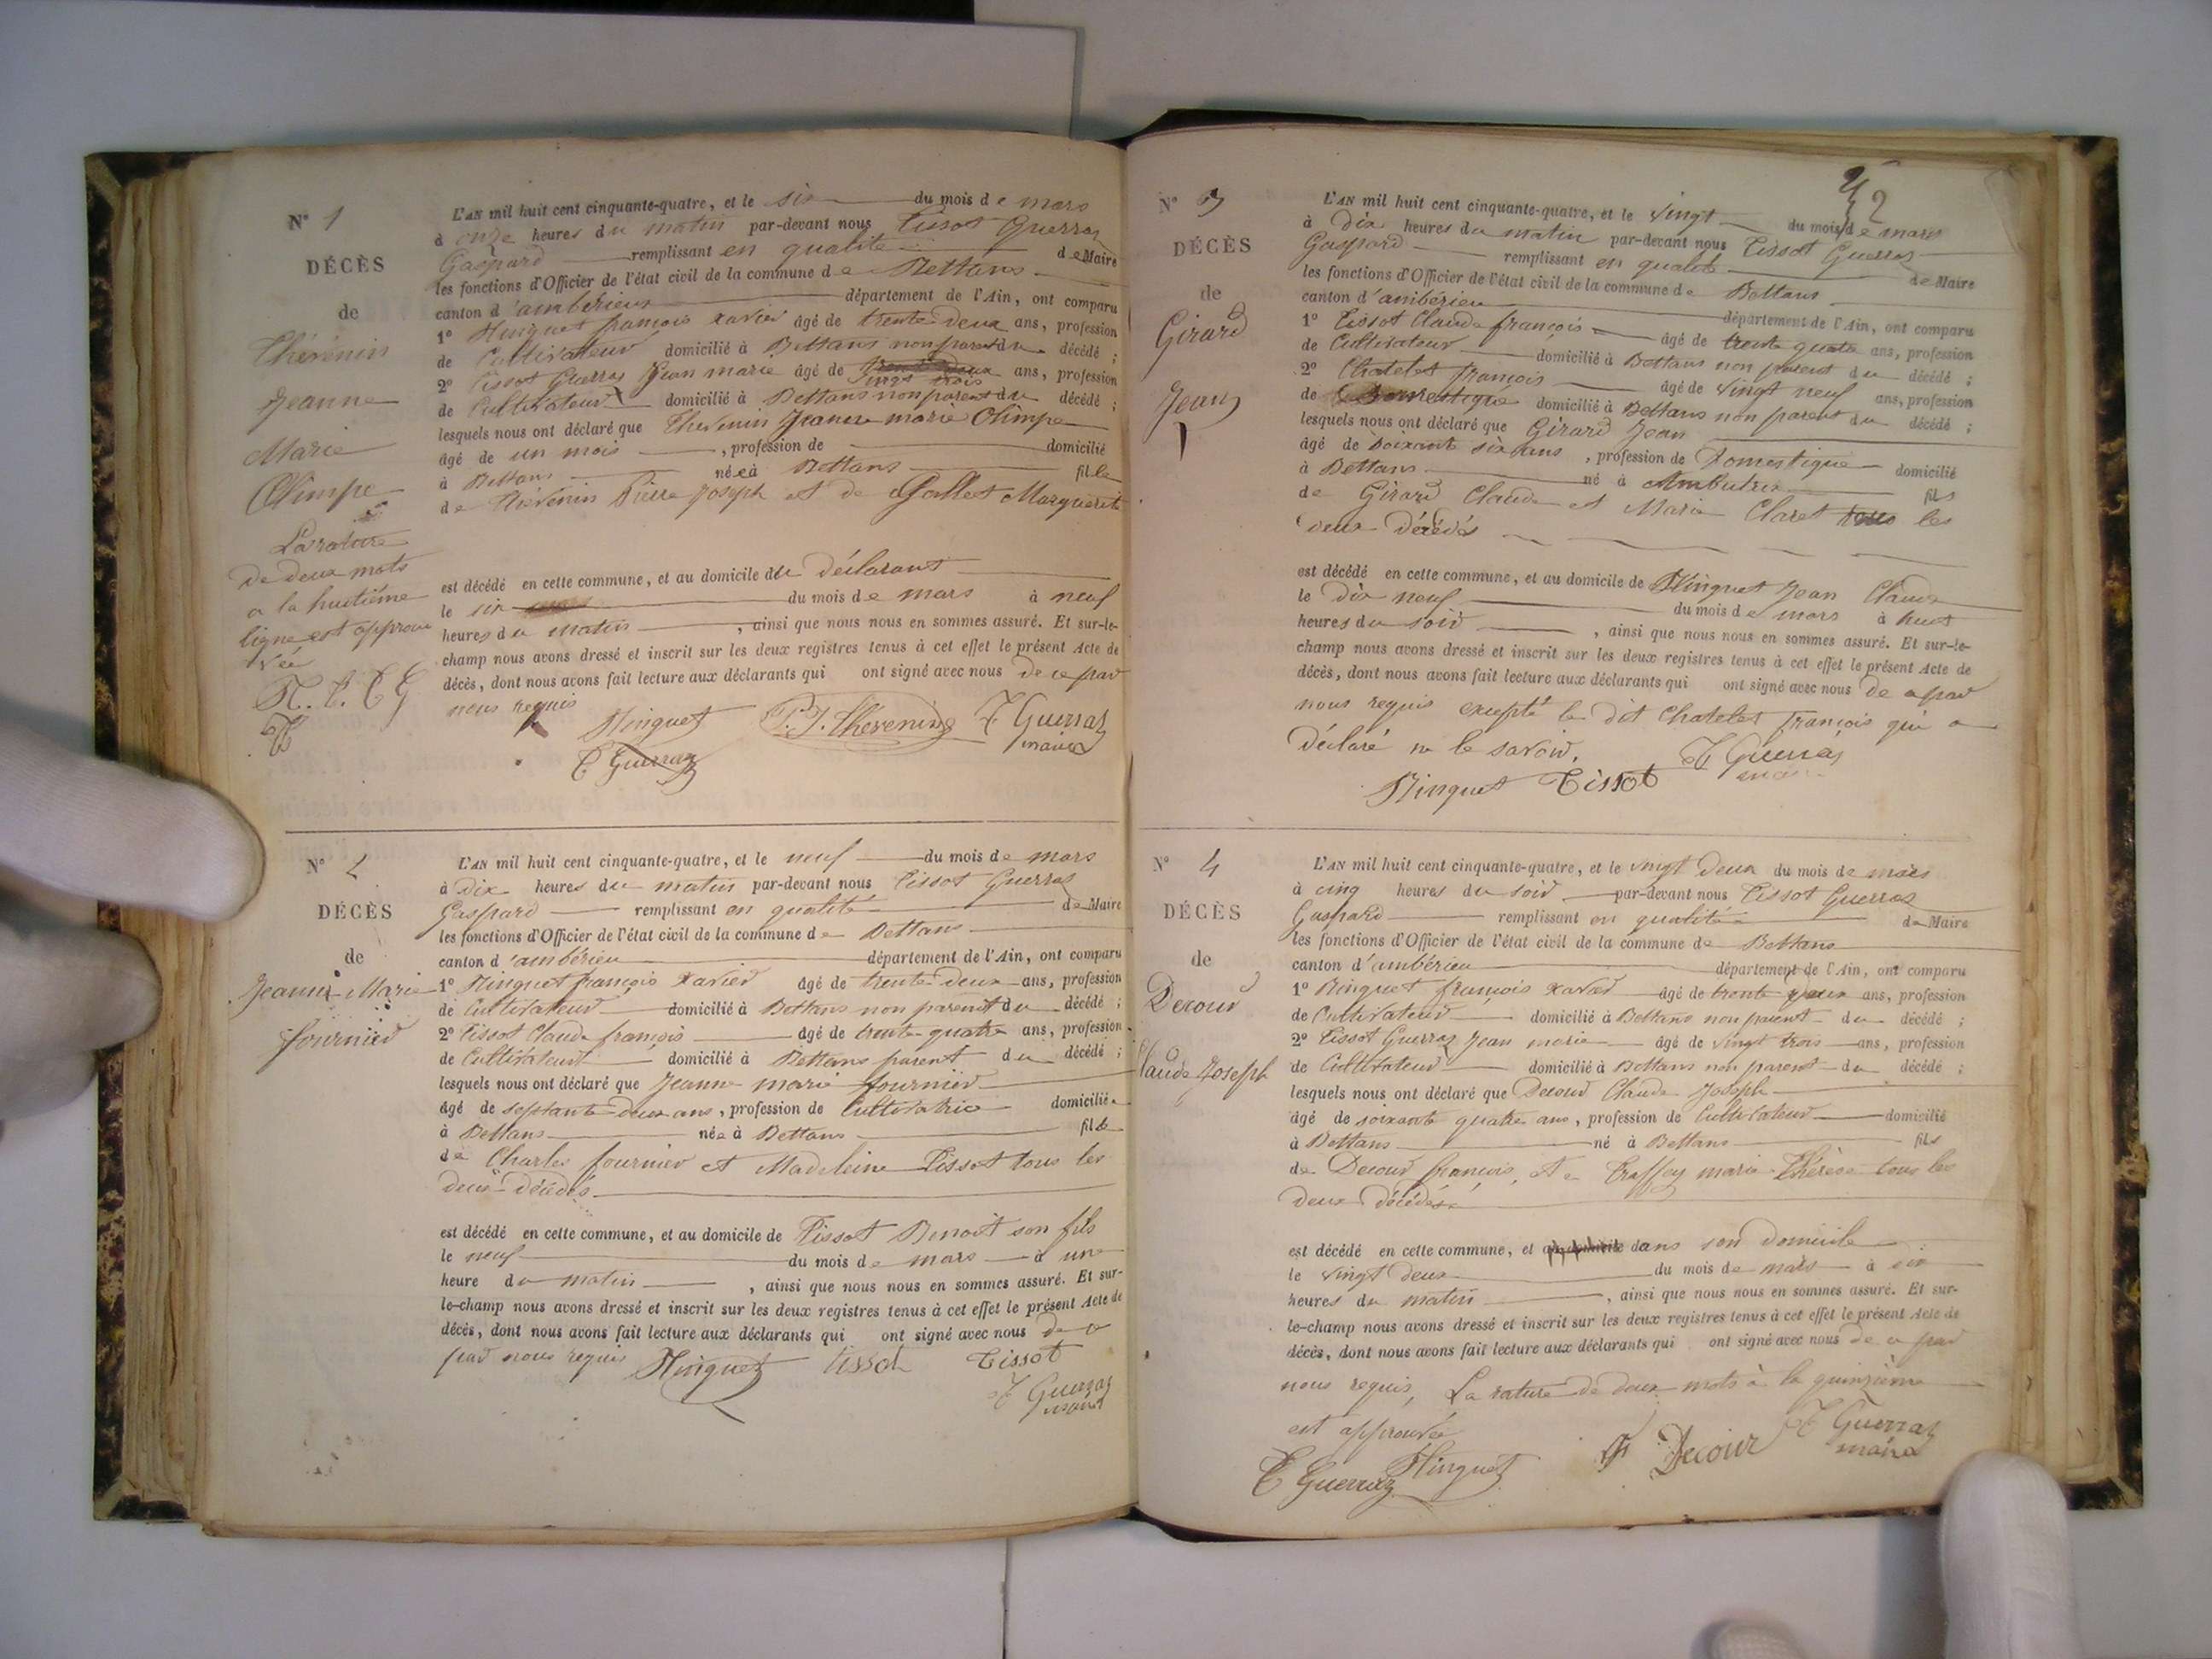 N° 1
DÉCÈS
de
Thévenin
Jeanne
Marie
Olimpe
La rature
de deux mots
a la huitième
ligne est approu
vée
L'AN mil huit cent cinquante-quatre, et le six du mois de mars
à onze heures du matin par-devant nous Tissot Guerraz
Gaspard remplissant en qualité de Maire
les fonctions d'Officier de l'état civil de la commune de Bettans
canton d'ambérieux département de l'Ain, ont comparu
1° Hinguet françois xavier âgé de trente deux ans, profession
de Cultivateur domicilié à Bettans non parent du décédé ;
2° Tissot Guerraz Jean marie âgé de vingt trois ans, profession
de Cultivateur domicilié à Bettans non parent du décédé ;
lesquels nous ont déclaré que Thevenin Jeanne marie Olimpe
âgé de un mois , profession de domicilié
à Bettans née à Bettans fille
de Thévenin Pierre Joseph et de Gallet Marguerite
est décédé en cette commune, et au domicile du déclarant
le six du mois de mars à neuf
heures du matin , ainsi que nous nous en sommes assuré. Et sur-le-
champ nous avons dressé et inscrit sur les deux registres tenus à cet effet le présent Acte de
décès, dont nous avons fait lecture aux déclarants qui ont signé avec nous de ce par
nous requis
Hinguet P. J. Thevenin T Guerraz
maire
T Guerraz
N° 2
DÉCÈS
de
Jeanne Marie
fournier
L'AN mil huit cent cinquante-quatre, et le neuf du mois de mars
à Dix heures du matin par-devant nous Tissot Guerraz
Gaspard remplissant en qualité de Maire
les fonctions d'Officier de l'état civil de la commune de Bettans
canton d'ambérieu département de l'Ain, ont comparu
1° Hinguet françois Xavier âgé de trente deux ans, profession
de Cultivateur domicilié à Bettans non parent du décédé ;
2° Tissot Claude françois âgé de trente quatre ans, profession
de Cultivateur domicilié à Bettans parent du décédé ;
lesquels nous ont déclaré que Jeanne marie fournier
âgé de septante deux ans, profession de Cultivatrice domiciliée
à Bettans née à Bettans fille
de Charles fournier et Madeleine Tissot tous les
deux décédés
est décédé en cette commune, et au domicile de Tissot Benoit son fils
le neuf du mois de mars à une
heure du matin , ainsi que nous nous en sommes assuré. Et sur-
le-champ nous avons dressé et inscrit sur les deux registres tenus à cet effet le présent Acte de
décès, dont nous avons fait lecture aux déclarants qui ont signé avec nous de ce
par nous requis Hinguet tissot Tissot
T Guerraz
maire
N° 3
DÉCÈS
de
Girard
Jean
L'AN mil huit cent cinquante-quatre, et le vingt du mois de mars
à Dix heures du matin par-devant nous Tissot Guerraz
Gaspard remplissant en qualité de Maire
les fonctions d'Officier de l'état civil de la commune de Bettans
canton d'ambérieu département de l'Ain, ont comparu
1° Tissot Claude françois âgé de trente quatre ans, profession
de Cultivateur domicilié à Bettans non parent du décédé ;
2° Chatelet françois âgé de vingt neuf ans, profession
de Domestique domicilié à Bettans non parent du décédé ;
lesquels nous ont déclaré que Girard Jean
âgé de soixante six ans , profession de Domestique domicilié
à Bettans né à Ambutrix fils
de Girard Claude et Marie Claret tous les
deux décédés
est décédé en cette commune, et au domicile de Hinguet Jean Claude
le dix neuf du mois de mars à huit
heures du soir , ainsi que nous nous en sommes assuré. Et sur-le-
champ nous avons dressé et inscrit sur les deux registres tenus à cet effet le présent Acte de
décès, dont nous avons fait lecture aux déclarants qui ont signé avec nous de ce par
nous requis excepté le dit Chatelet françois qui a
Déclaré ne le savoir. T Guerraz
Hinguet Tissot
N° 4
DÉCÈS
de
Decour
Claude Joseph
L'AN mil huit cent cinquante-quatre, et le vingt deux du mois de mars
à cinq heures du soir par-devant nous Tissot Guerraz
Gaspard remplissant en qualité de Maire
les fonctions d'Officier de l'état civil de la commune de Bettans
canton d'ambérieu département de l'Ain, ont comparu
1° Hinguet françois xavier âgé de trente deux ans, profession
de Cultivateur domicilié à Bettans non parent du décédé ;
2° Tissot Guerraz Jean marie âgé de vingt trois ans, profession
de Cultivateur domicilié à Bettans non parent du décédé ;
lesquels nous ont déclaré que Decour Claude Joseph
âgé de soixante quatre ans, profession de Cultivateur domicilié
à Bettans né à Bettans fils
de Decour françois, et Traffey marie Thérèse tous les
deux décédés
est décédé en cette commune, et dans son domicile
le vingt deux du mois de mars à six
heures du matin , ainsi que nous nous en sommes assuré. Et sur-
le-champ nous avons dressé et inscrit sur les deux registres tenus à cet effet le présent Acte de
décès, dont nous avons fait lecture aux déclarants qui ont signé avec nous de ce par
nous requis, La rature de deux mots à la quinzième
est approuvée
T Guerraz Hinguet Decour T Guerraz
maire